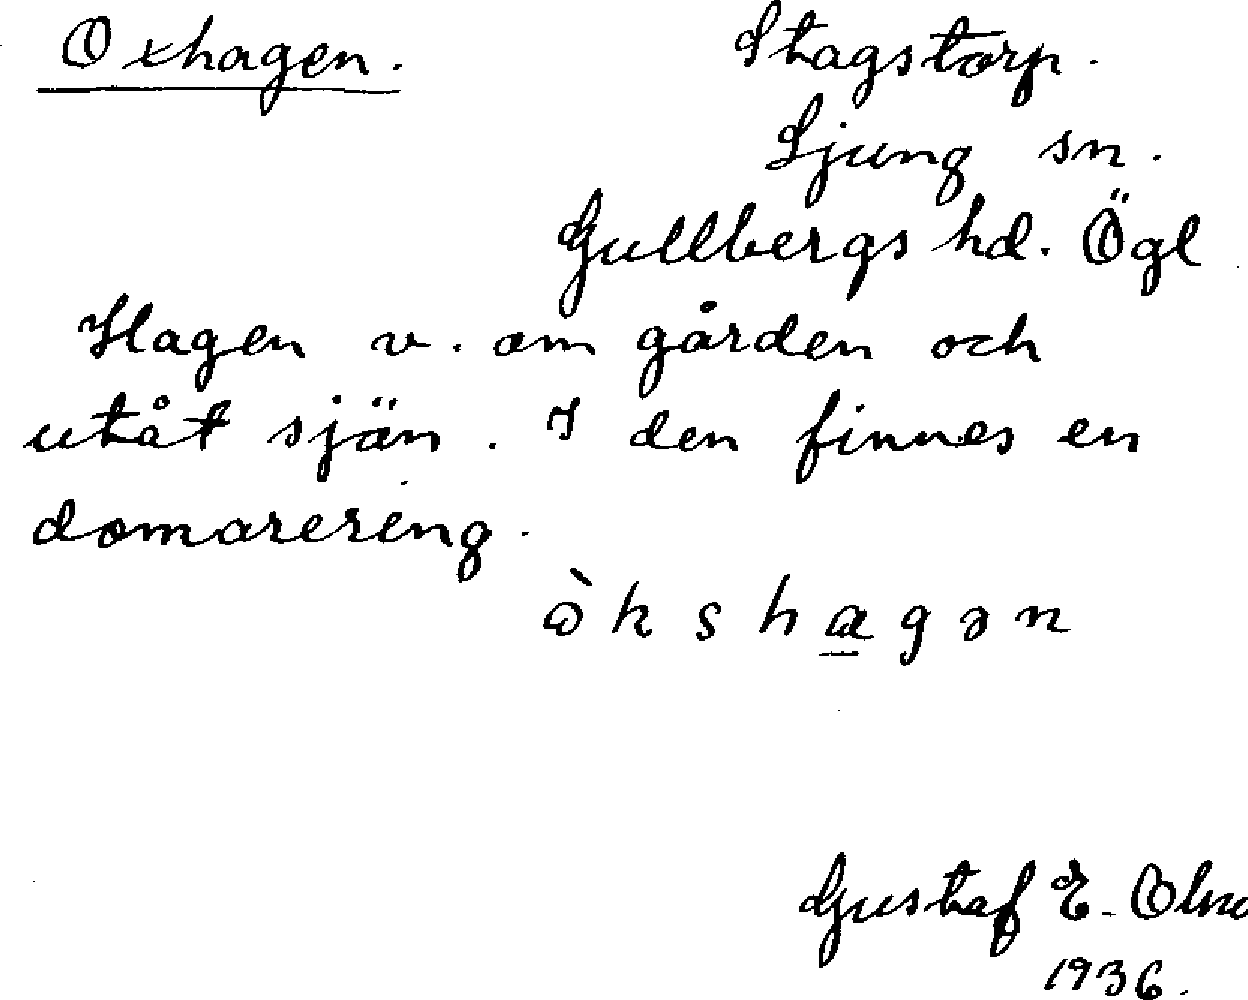 Oxhagen.
Stagstorp.
Ljung sn.
Gullbergs hd. Ögl
Hagen v. om gården och
utåt sjön. I den finnes en
domarering.
ò k s h a g ə n
Gustaf E. Olso
1936.